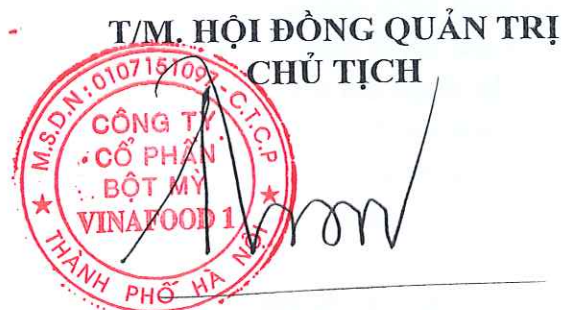 T/M. HỘI ĐỒNG QUẢN TRỊ
CHỦ TỊCH
M.S.D.N: 0107151097 - C.T.C.P
CÔNG TY
CỔ PHẦN
BỘT MỲ
VINAFOOD 1
THÀNH PHỐ HÀ NỘI